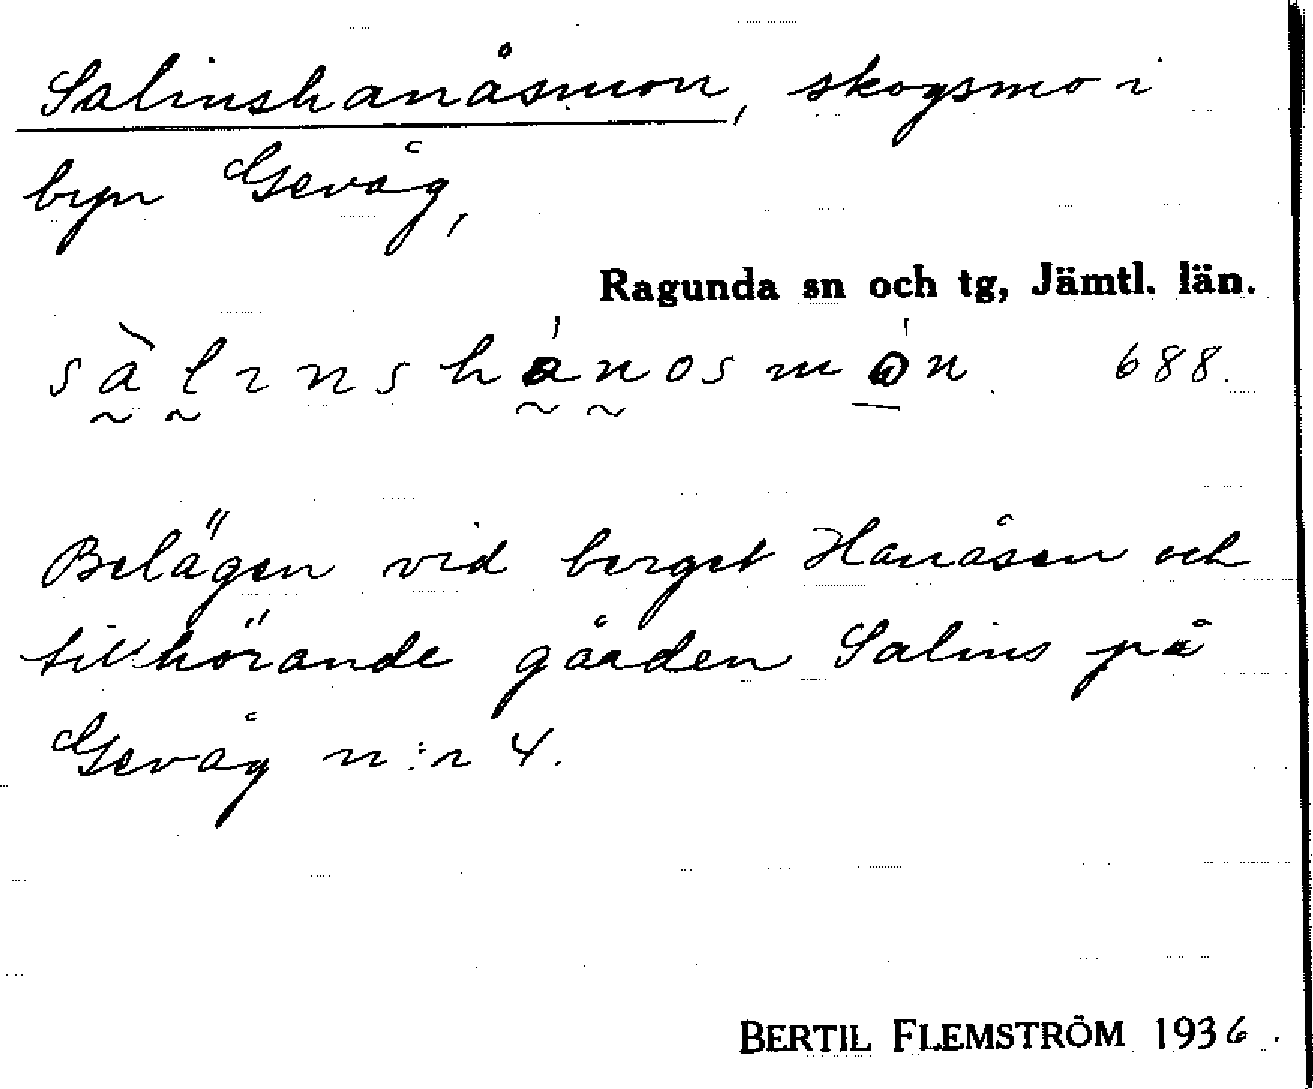 Salinshanåsmon, skogsmo i
byn Gevåg,
Ragunda sn och tg, Jämtl. län.
sàlınshánosmón. 688.
Belägen vid berget Hanåsen och
tillhörande gården Salins på
Gevåg n:r 4.
BERTIL FLEMSTRÖM 1936.